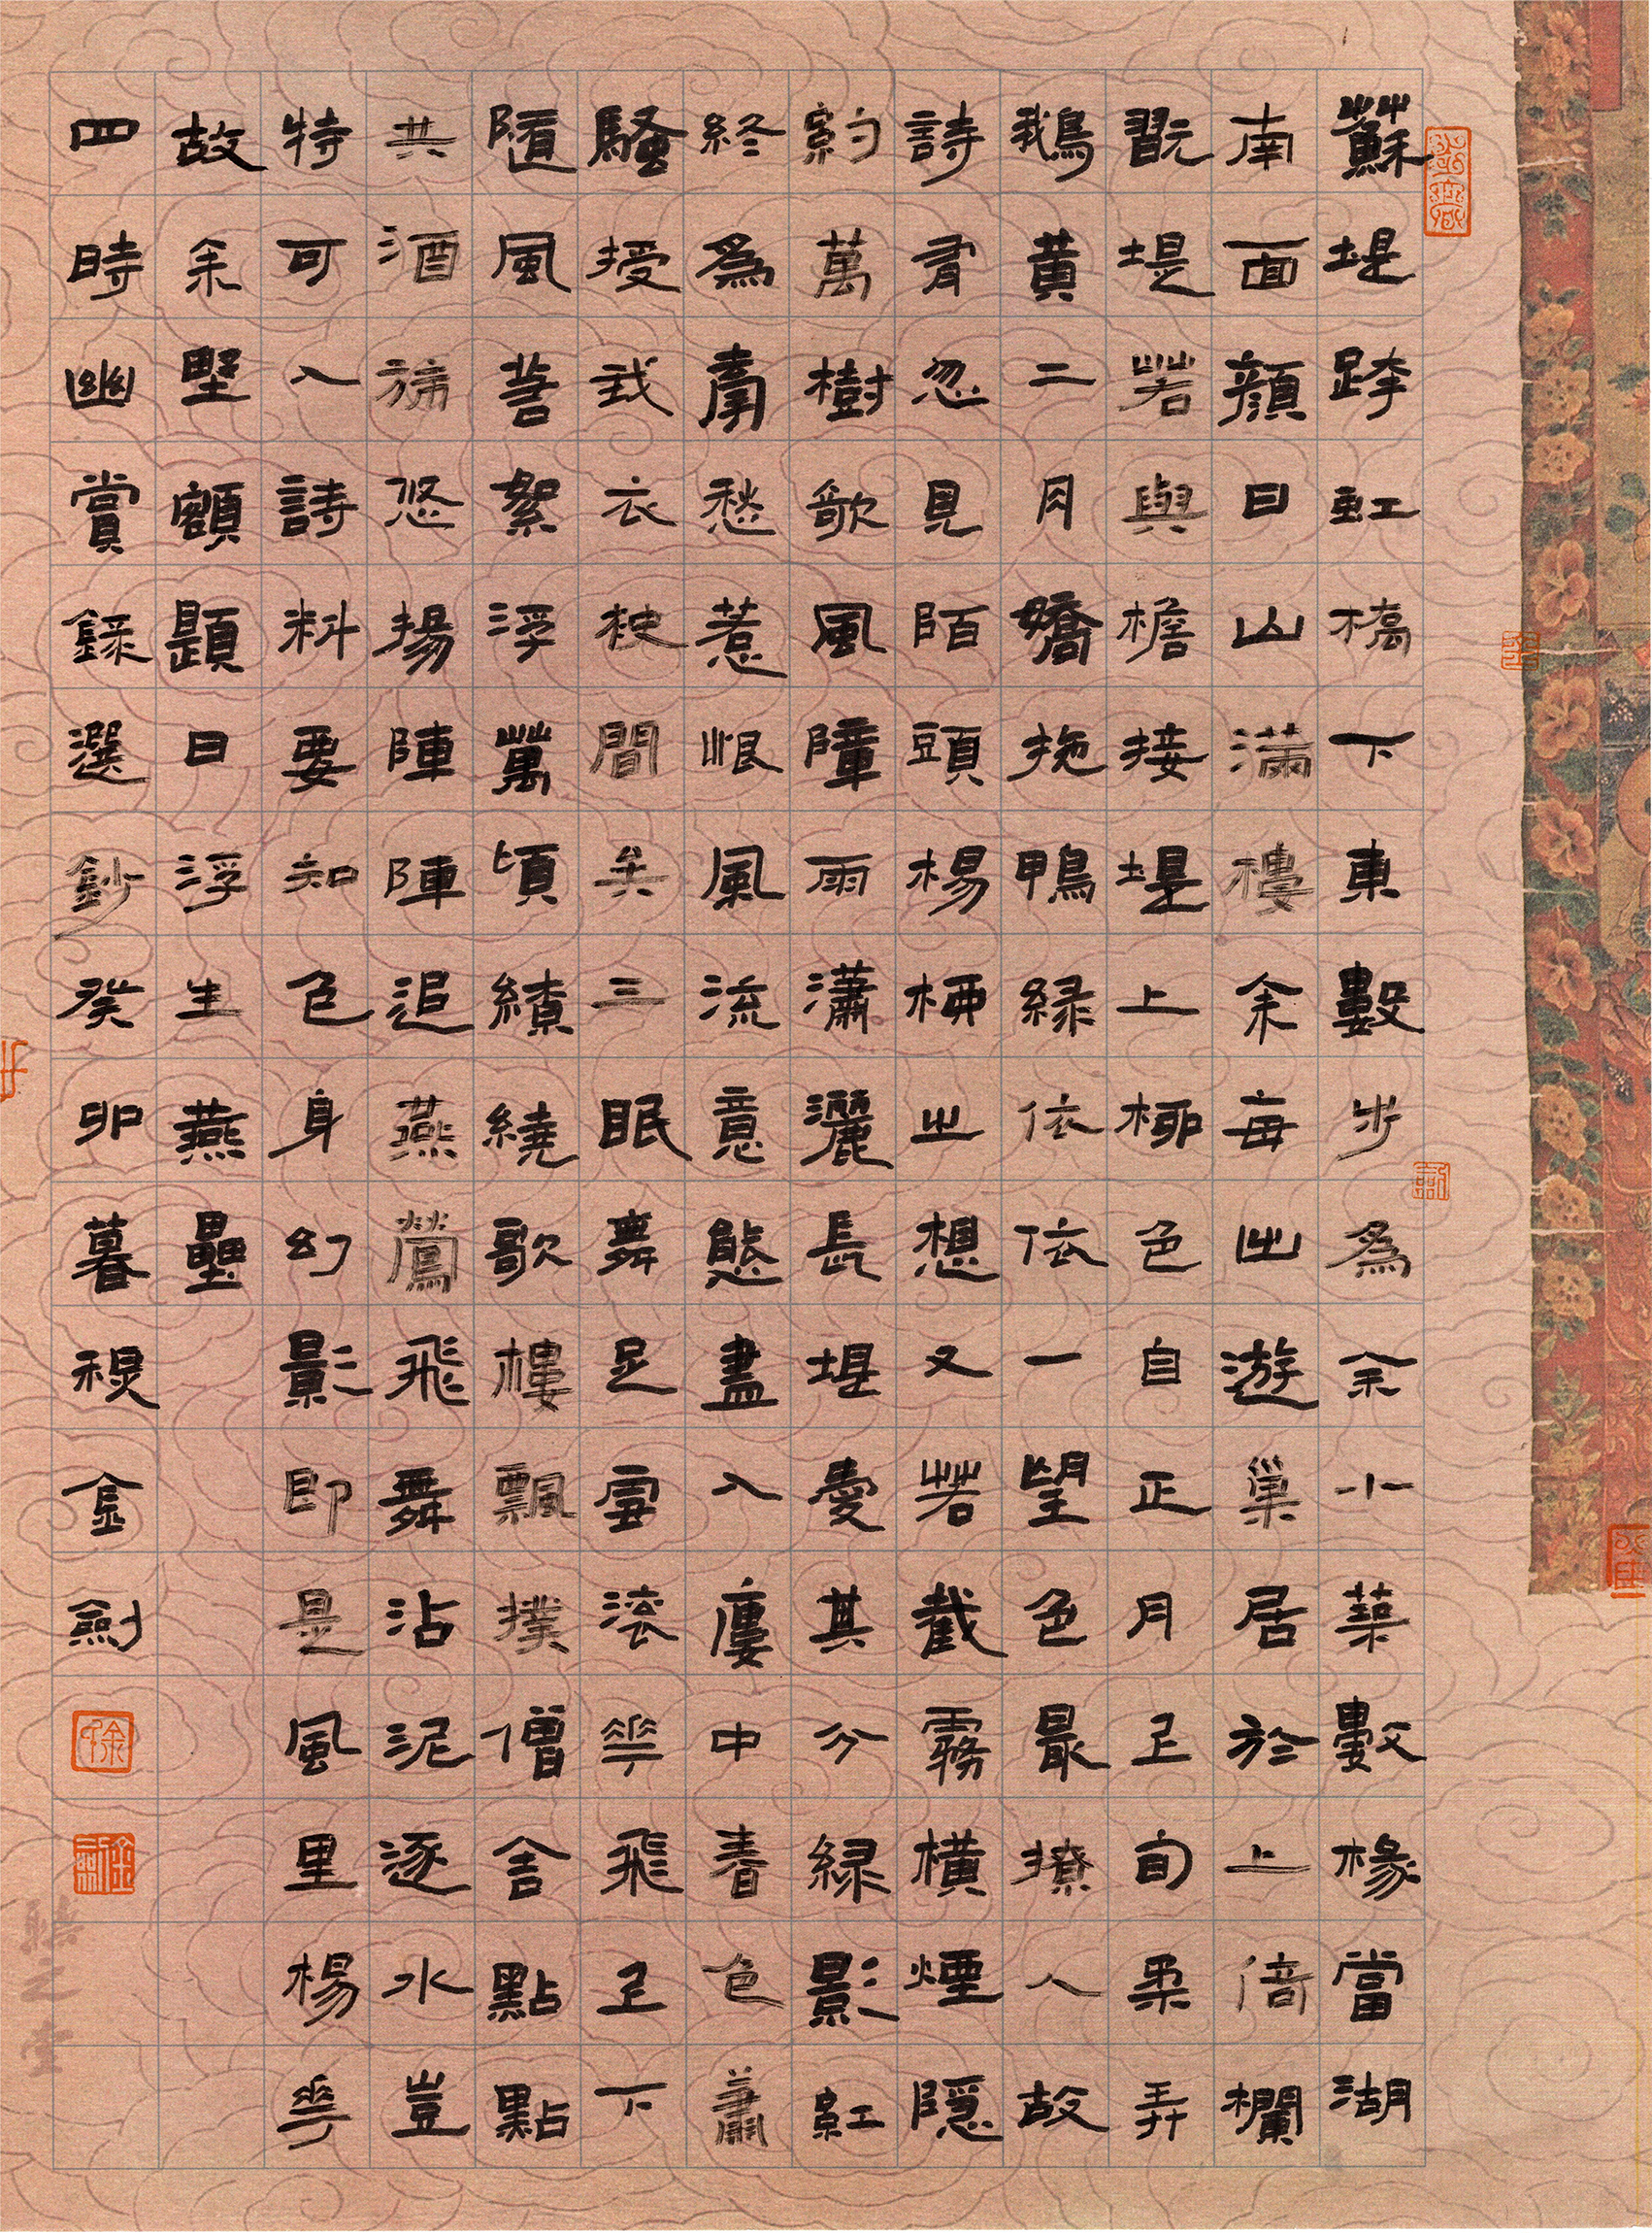 蘇堤跨虹橋下東數步為余小築數椽當湖
南面顏曰山滿樓余每出遊巢居於上倚欄
翫堤若與檐接堤上柳色自正月上旬柔弄
鵝黃二月嬌拖鴨綠依依一望色最撩人故
詩有忽見陌頭楊柳之想又若截霧橫煙隱
約萬樹歌風障雨瀟灑長堤愛其分綠影紅
終為牽愁惹恨風流意態盡入廔中春色蕭
騷授我衣袂間矣三眠舞足雪滾花飛上下
隨風若絮浮萬頃繚繞歌樓飄撲僧舍點點
共酒旆悠揚陣陣追燕鶯飛舞沾泥逐水豈
特可入詩料要知色身幻影即是風里楊花
故余墅額題曰浮生燕壘
四時幽賞錄選鈔癸卯暮禊金劍